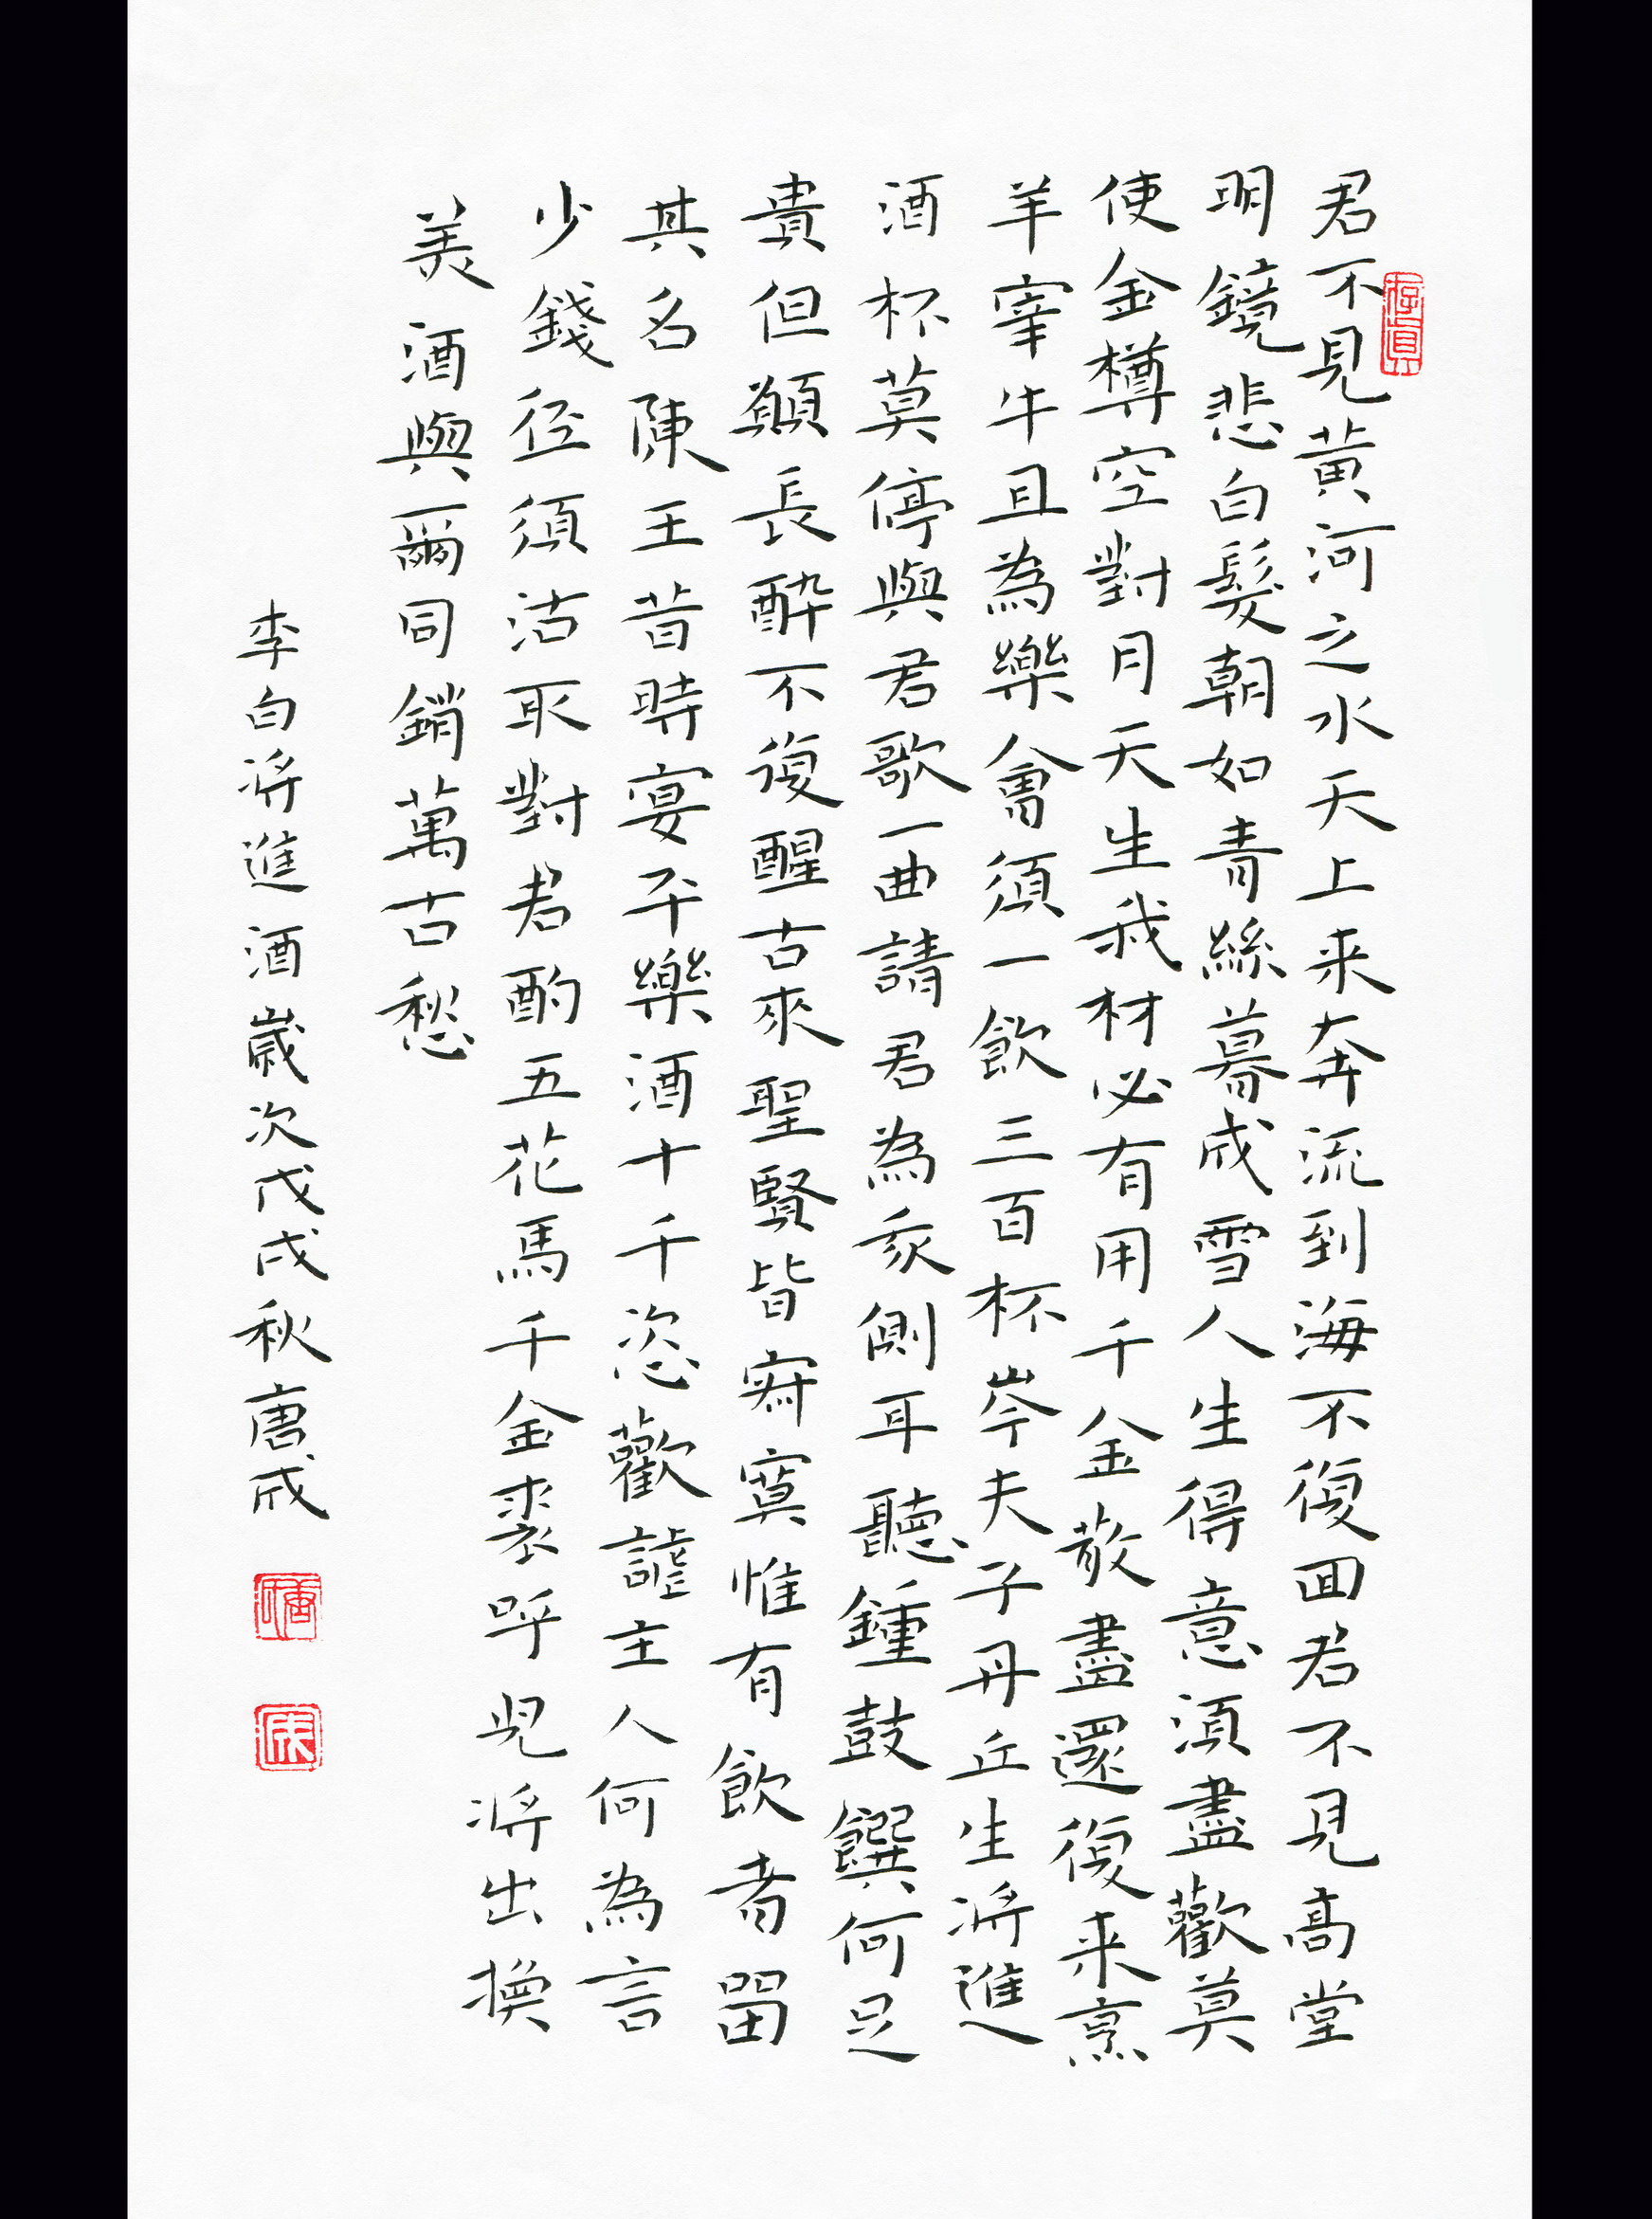 君不見黃河之水天上来奔流到海不復回君不見高堂
明鏡悲白髮朝如青絲暮成雪人生得意須盡歡莫
使金樽空對月天生我材必有用千金散盡還復来烹
羊宰牛且為樂會須一飲三百杯岑夫子丹丘生將進
酒杯莫停與君歌一曲請君為我側耳聽鍾鼓饌何足
貴但願長醉不復醒古來聖賢皆寂寞惟有飲者留
其名陳王昔時宴平樂酒十千恣歡謔主人何為言
少錢徑須沽取對君酌五花馬千金裘呼兒將出換
美酒與爾同銷萬古愁
李白將進酒歲次戊戌秋唐成
存真